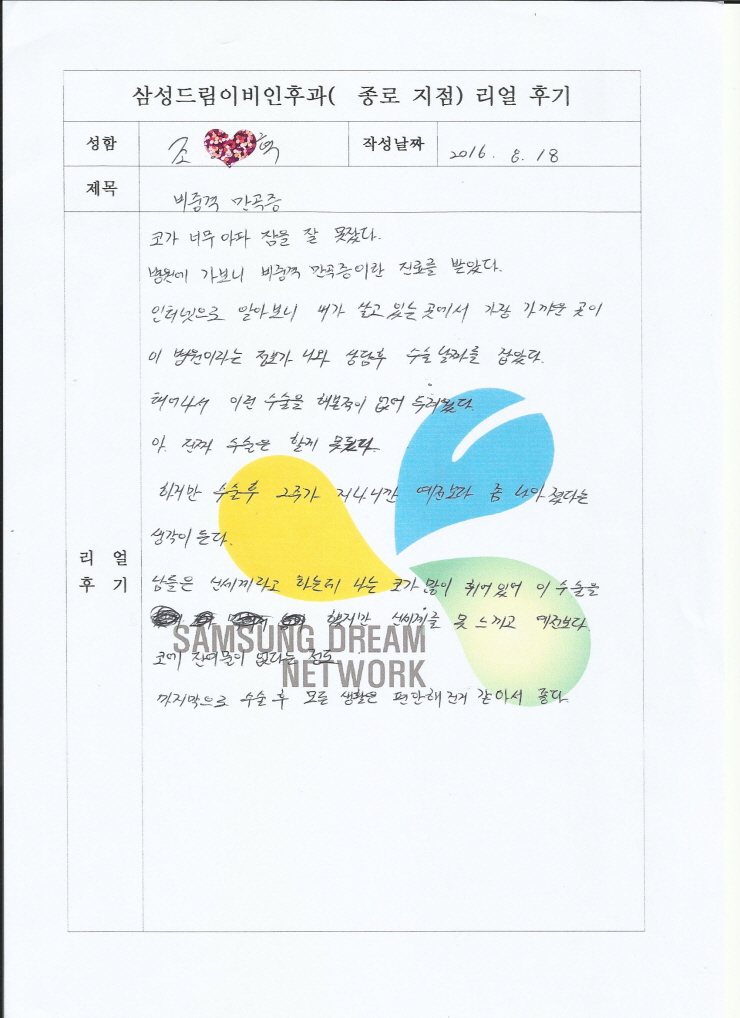 삼성드림이비인후과( 종로 지점) 리얼 후기
성함 조 혁 작성날짜 2016. 8. 18
제목 비중격 만곡증
코가 너무 아파 잠을 잘 못잤다.
병원에 가보니 비중격 만곡증이란 진료를 받았다.
인터넷으로 알아보니 내가 살고 있는 곳에서 가장 가까운 곳이
이 병원이라는 정보가 나와 상담후 수술 날짜를 잡았다.
태어나서 이런 수술을 해본적이 없어 두려웠다.
아. 진짜 수술은 할게 못된다.
하지만 수술후 2주가 지나니깐 예전보다 좀 나아 졌다는
생각이 든다.
리얼 후기
남들은 신세계라고 하는데 나는 코가 많이 휘어 있어 이 수술을
했지만 신세계를 못 느끼고 예전보다.
코에 잔여물이 없다는 정도
마지막으로 수술 후 모든 생활은 편안해진거 같아서 좋다.
SAMSUNG DREAM
NETWORK